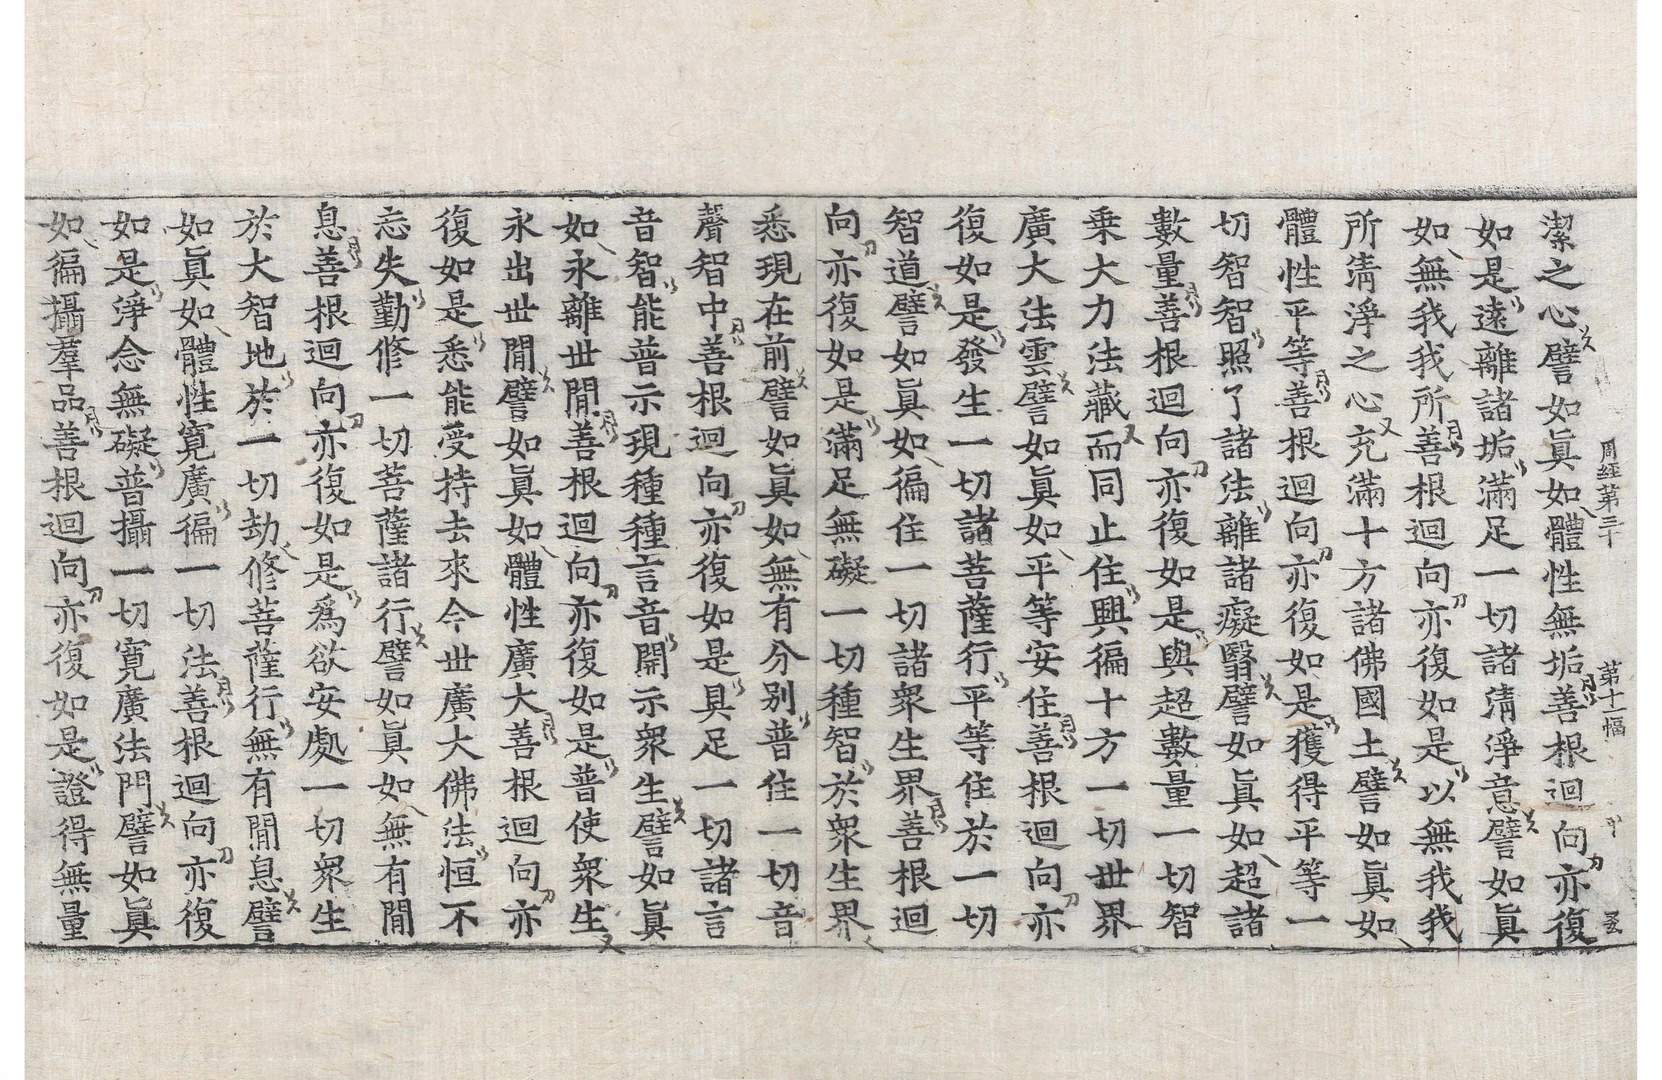 周經第三十 第十一幅
潔之心譬如眞如體性無垢善根迴向亦復
如是遠離諸垢滿足一切諸清淨意譬如眞
如無我我所善根迴向亦復如是以無我我
所清淨之心充滿十方諸佛國土譬如眞如
體性平等善根迴向亦復如是獲得平等一
切智智照了諸法離諸癡翳譬如眞如超諸
數量善根迴向亦復如是與超數量一切智
乗大力法藏而同止住興徧十方一切世界
廣大法雲譬如眞如平等安住善根迴向亦
復如是發生一切諸菩薩行平等住於一切
智道譬如眞如徧住一切諸衆生界善根迴
向亦復如是滿足無礙一切種智於衆生界
悉現在前譬如眞如無有分别普住一切音
聲智中善根迴向亦復如是具足一切諸言
音智能普示現種種言音開示衆生譬如眞
如永離世閒善根迴向亦復如是普使衆生
永出世閒譬如眞如體性廣大善根迴向亦
復如是悉能受持去來今世廣大佛法恒不
忘失勤修一切菩薩諸行譬如眞如無有閒
息善根迴向亦復如是爲欲安處一切衆生
於大智地於一切劫修菩薩行無有閒息譬
如眞如體性寛廣徧一切法善根迴向亦復
如是淨念無礙普攝一切寛廣法門譬如眞
如徧攝羣品善根迴向亦復如是證得無量